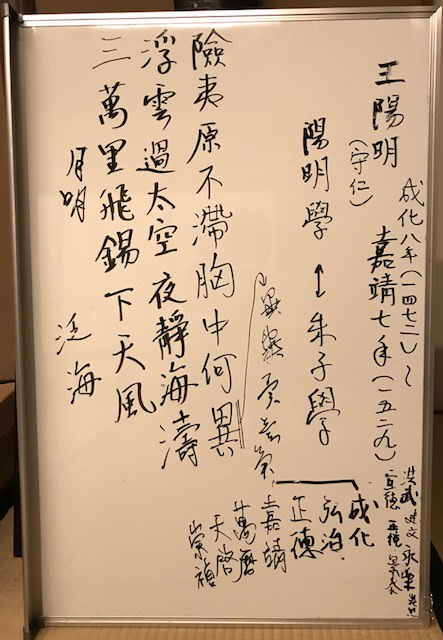 王陽明
(守仁)
成化八年(一四七二)〜
嘉靖七年(一五二九)
洪武 建文 永樂
宣德 正統 景泰
陽明學 ↔ 朱子學
成化
弘治
正德
嘉靖
萬曆
天啓
崇禎
險夷原不滯胸中何異
浮雲過太空夜靜海濤
三萬里飛錫下天風
月明
泛海